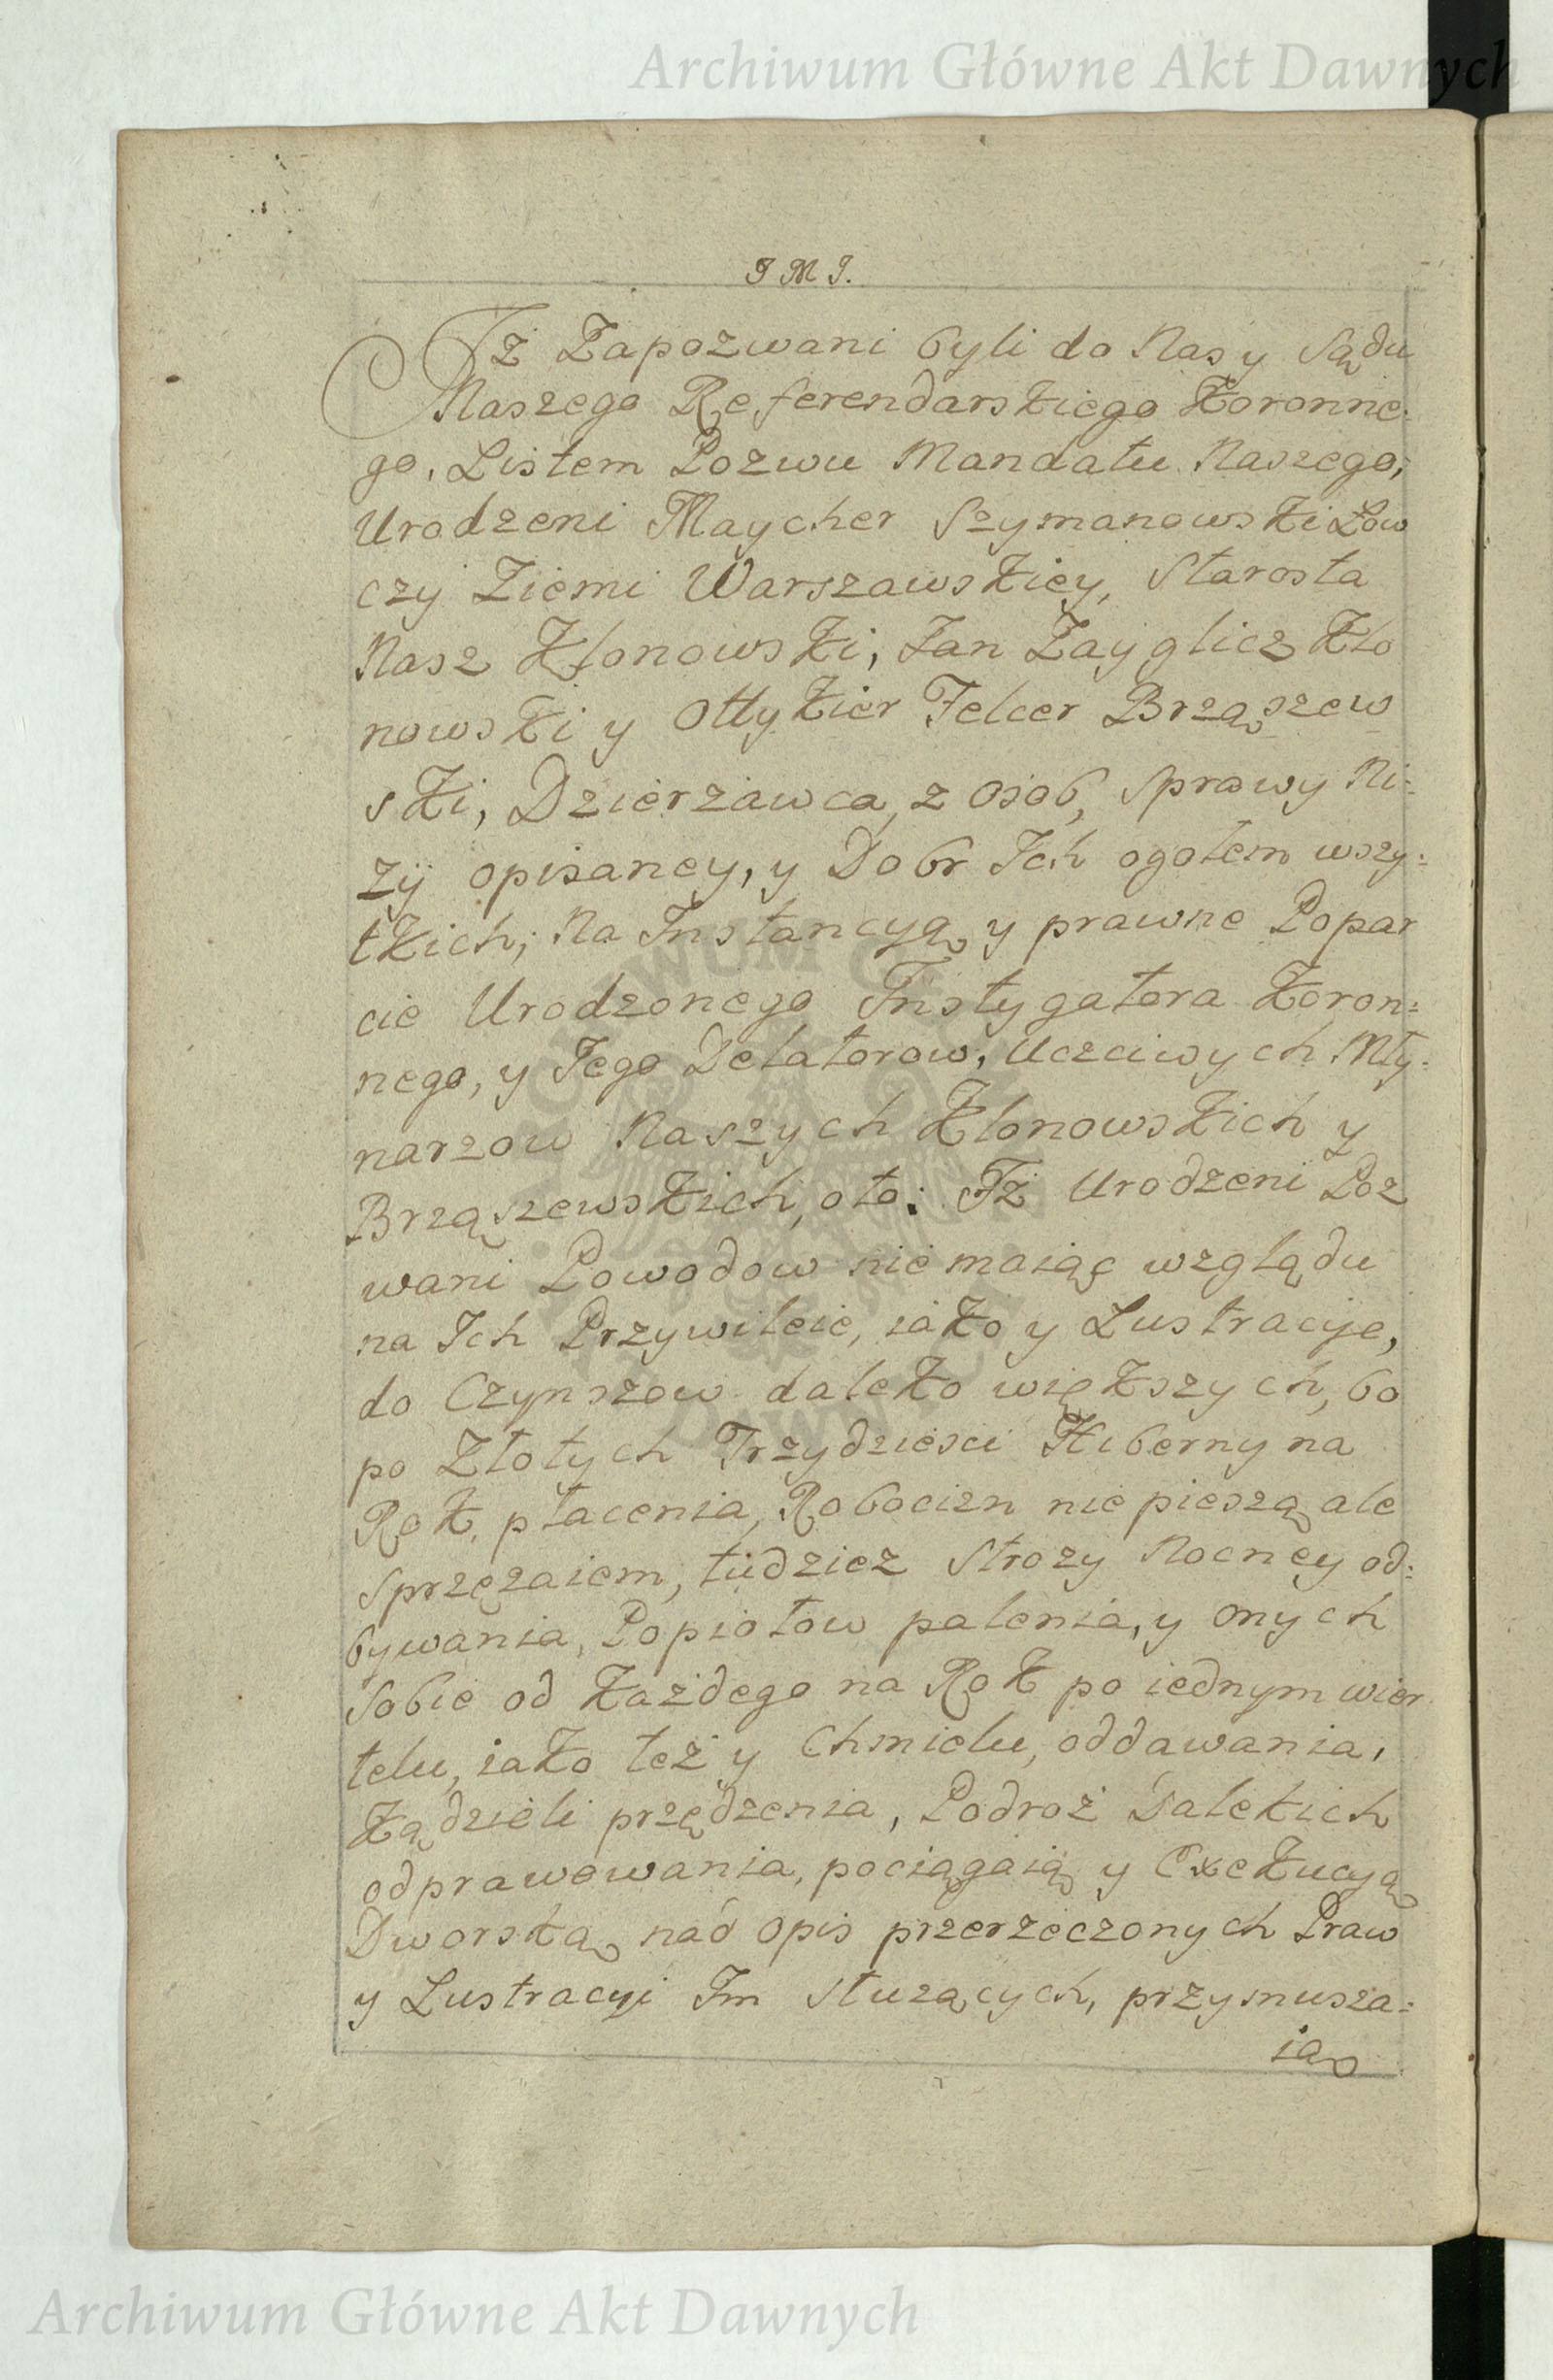 Archiwum Główne Akt Dawnych
J M J.
Iż Zapozwani byli do Nas y Sądu
Naszego Referendarskiego Koronne:
go, Listem Pozwu Mandatu Naszego,
Urodzeni Maycher Szymanowski Łow
czy Ziemi Warszawskiey, Starosta
Nasz Kłonowski, Jan Zayglicz Kło
nowski y Ottykier Felcer Brząszew
ski, Dzierzawca, z Osob, Sprawy Ni:
zÿ opisaney, y Dobr Ich ogołem wszy:
tkich; Na Instancyą y prawne Popar
cie Urodzonego Instygatora Koron:
nego, y Jego Delatorow, Uczciwych Mły:
narzow Naszych Kłonowskich y
Brząszewskich, oto: Iż Urodzeni Poz
wani Powodow nie maiąc względu
na Ich Przywileie, iako y Lustracye,
do Czynszow daleko większych, bo
po Złotych Trzydziesci Hiberny na
Rok, płacenia, Robocizn nie pieszą ale
Sprzęzaiem, tudziez Strozy Nocney od:
bywania, Popiołow palenia, y onych
Sobie od każdego na Rok po iednym wier
telu, iako też y Chmielu, oddawania,
Kądzieli przędzenia, Podroż Dalekich
odprawowania, pociągaią y Exekucyą
Dworską nád Opis przerzeczonych Praw
y Lustracyi Im słuzących, przymusza:
ią
Archiwum Główne Akt Dawnych